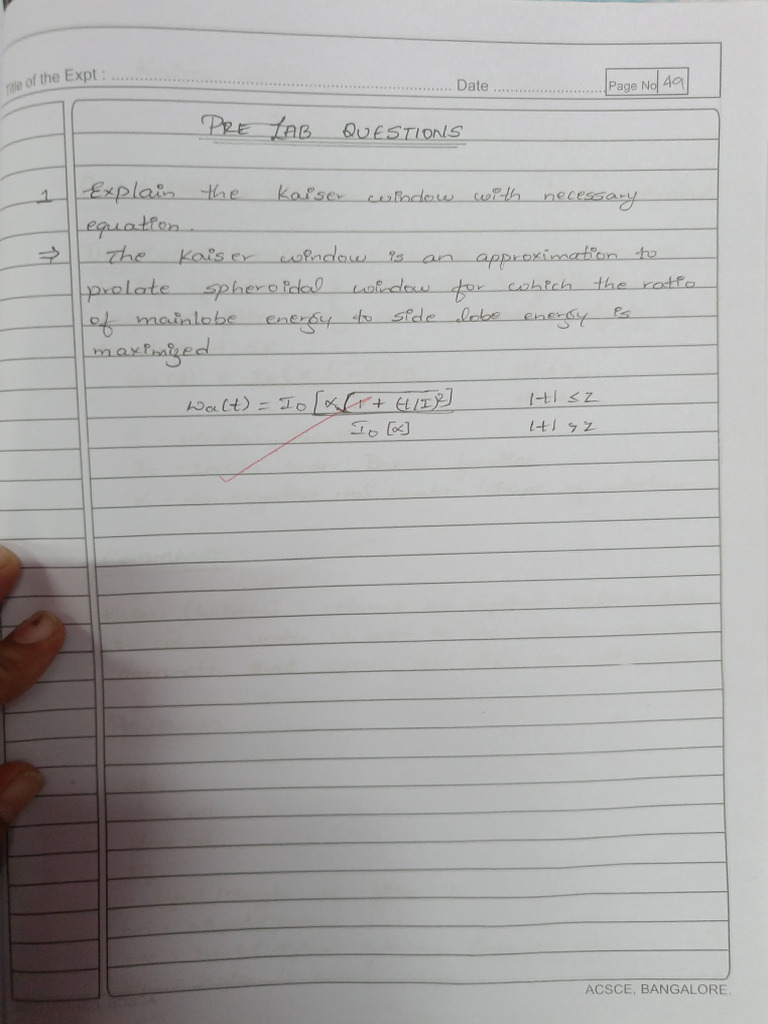 Title of the Expt : .......... Date .......... Page No 49
PRE LAB QUESTIONS
1 Explain the Kaiser window with necessary
equation.
⇒ The Kaiser window is an approximation to
prolate spheroidal window for which the ratio
of mainlobe energy to side lobe energy is
maximized
Wa(t) = I0 [α√1 + (t/I)²] |t| ≤ z
I0 [α] |t| > z
ACSCE, BANGALORE.